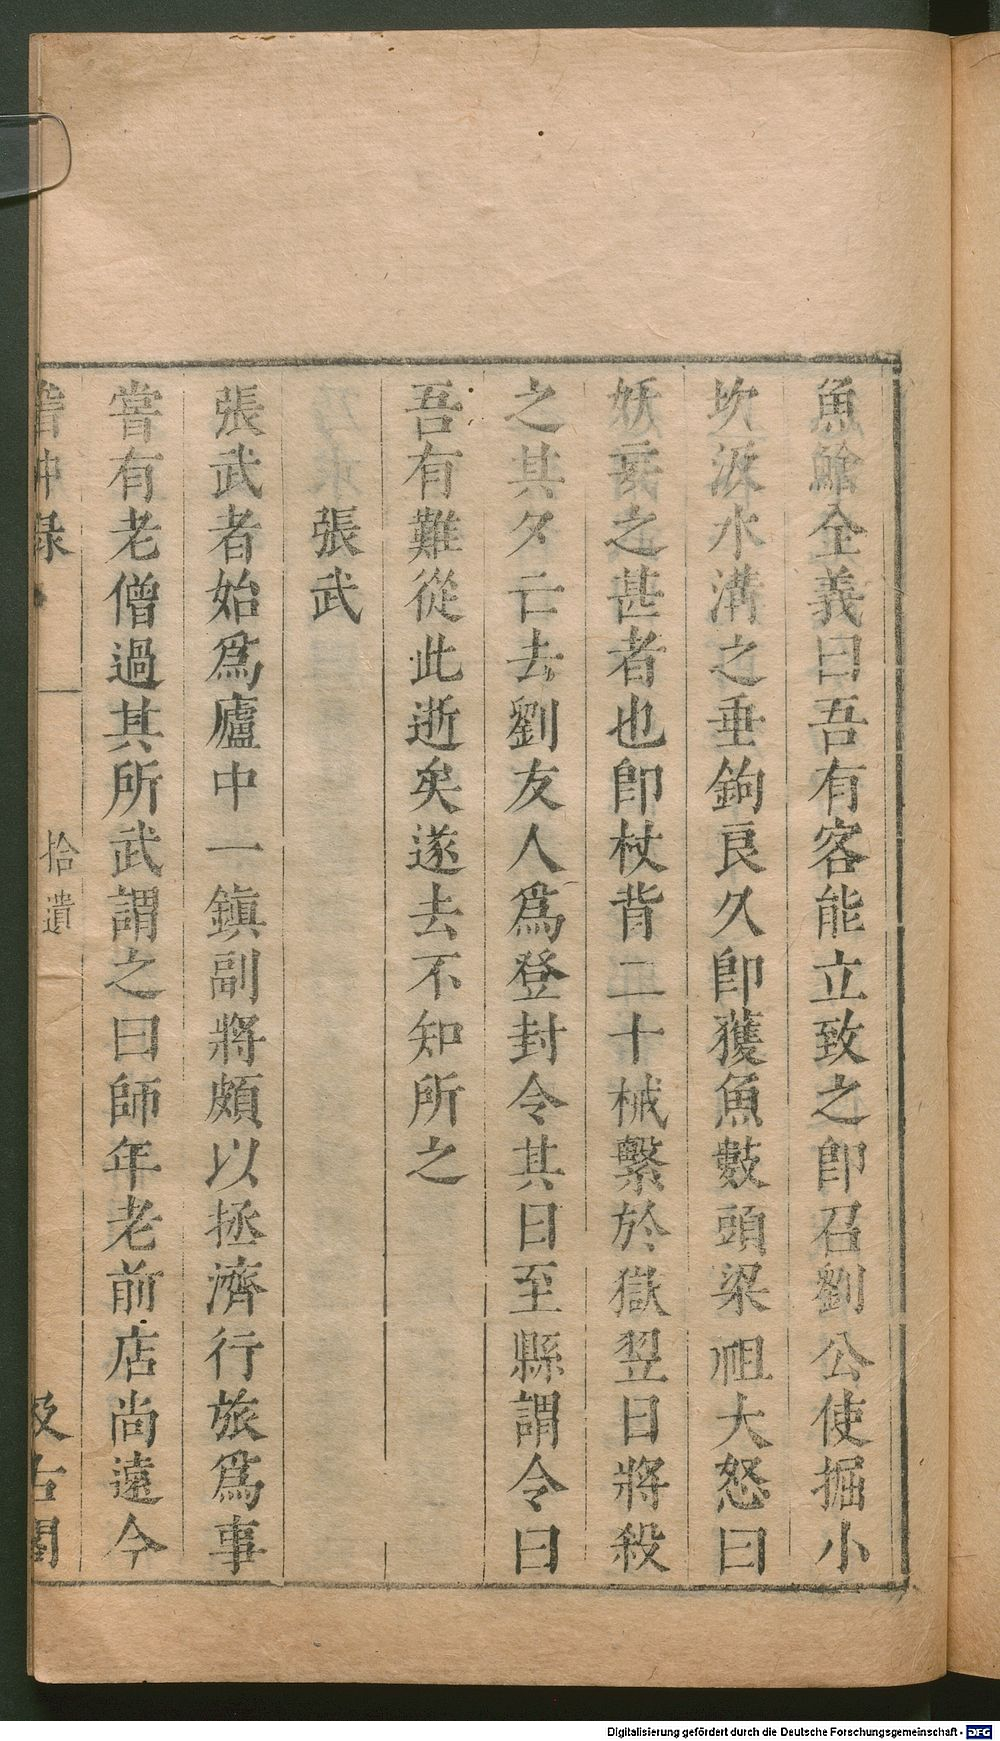 魚鱠全義曰吾有客能立致之卽召劉公使掘小
坎汲水溝之垂鉤良久卽獲魚數頭梁祖大怒曰
妖妄之甚者也卽杖背二十械繫於獄翌日將殺
之其夕亡去劉友人爲登封令其日至縣謂令曰
吾有難從此逝矣遂去不知所之
張武
張武者始爲廬中一鎮副將頗以拯濟行旅爲事
嘗有老僧過其所武謂之曰師年老前店尚遠今
拾遺
汲古閣
Digitalisierung gefördert durch die Deutsche Forschungsgemeinschaft - DFG